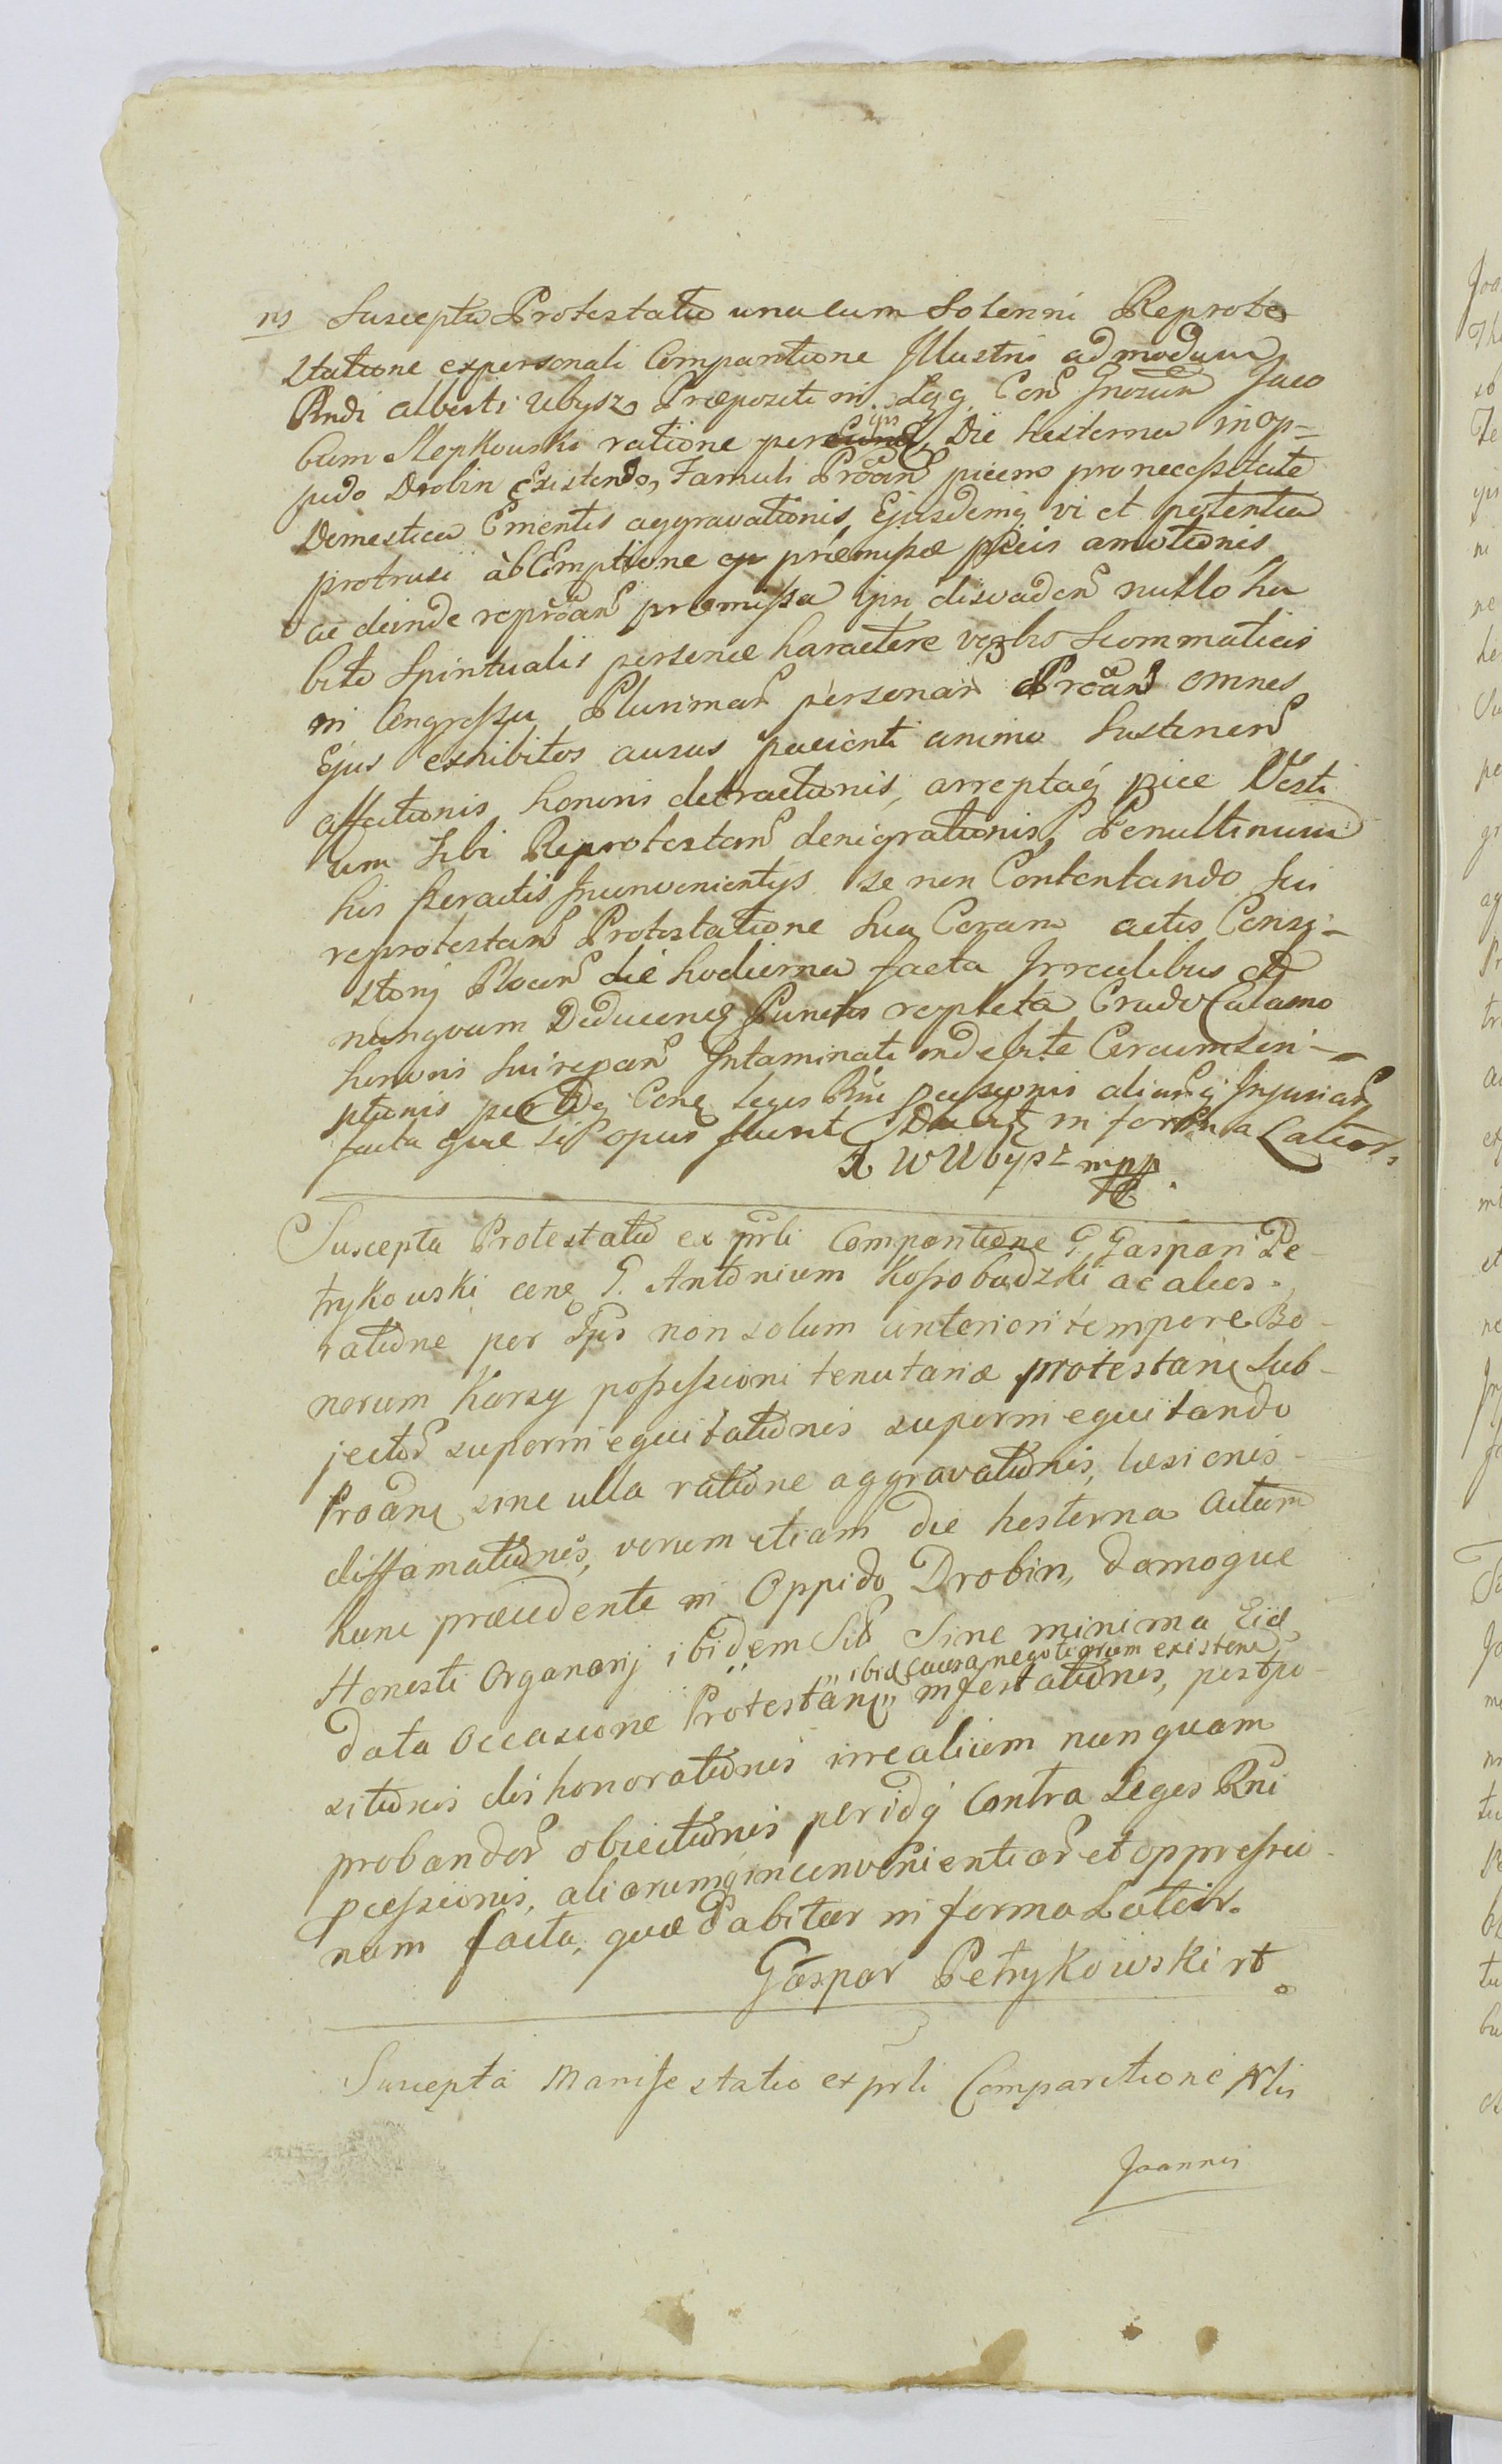 ns Suscepta Protestatio unacum Solenni Reprote
statione ex personali Comparitione Illustris admodum
Rndi Alberti Ubysz Præpositi in Cone Gnosum Jaco
bum Slepkowski ratione per ips Die hesterna in Op=
pido Drobin Existendo, Famuli Proan picem pro necessitate
Domestica Ementis aggravationis, Ejusdemq vi et potentia
protrusi àb Emptione præmissæ picis amotionis
ac deinde reproan præmissa ipsi disvaden nullo ha
bito Spiritualis personæ haractere verbis Scommaticis
in Congressu Plurimar personar Proan omnes
Ejus exhibitos ausus pacienti animo Sustinen
affectionis honoris detractionis, arreptaq pice Vesti
um Sibi Reprotestan denigrationis, Penultimum
his peractis Inconvenientys se non Contentando Sui
reprotestan Protestatione Sua Coram actis Consi=
storij Plocen die hodierna facta Irrealibus et
nunquam Deducen Punctis repleta Crudo Calamo
honoris Sui repan Intaminati indebite Circumscri=
ptionis per idq Con Leges Rni pcessionis aliarq Injuriar
facta quæ si opus fuerit Dabit in forma Latiori
A W Ubysz mpp
Suscepta Protestatio ex prli Comparitione G. Gaspari Pe-
trykowski con G. Antonium Kossobudzki ac alios.
ratione per Ips non solum anteriori tempore Bo-
norum Karsy possessioni tenutariæ protestan Sub-
jector superini equitationis superini equitando
Proan sine ulla ratione aggravationis, læsionis-
diffamationis, verum etiam die hesterna Actum
hunc præcedente in Oppido Drobin, domoque
Honesti Organarij ibidem Sit Sine minima Eid
" ibid causa negotiorum existen
data occasione Protestan" infestationis, postpo-
sitionis dishonorationis irrealium nunquam
probandor obiectionis per idq Contra Leges Rni
pcessionis, aliarumq inconvenientiar et oppressio-
num facta, quæ Dabitur in forma Latior.
Gaspar Petrykowski rt.
Suscepta Manifestatio ex prli Comparitione Nlis
Joannis